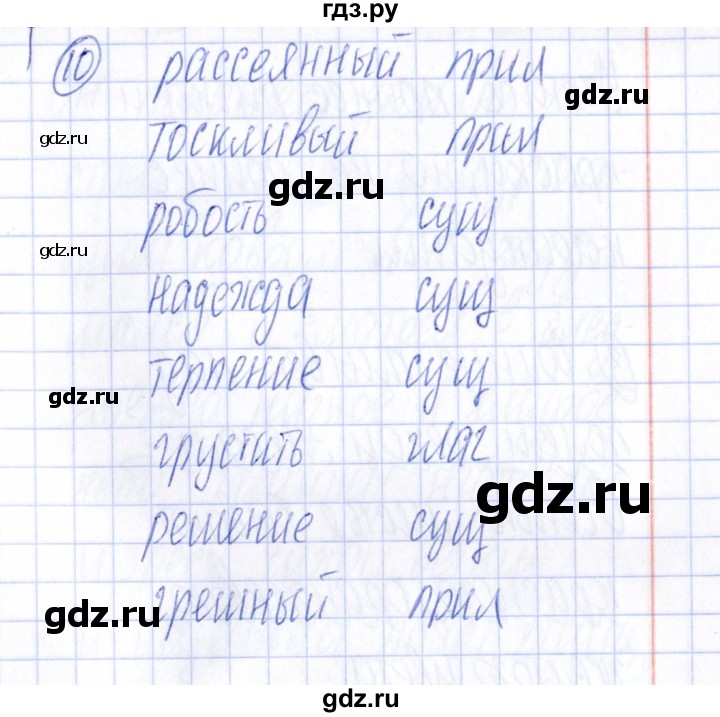 гдз.ру
10 рассеянный прил
gdz.ru
gdz.ru
тоскливый прил
gdz.ru
робость сущ
gdz.ru
надежда сущ
терпение сущ
gdz.ru
грустать глаг
gdz.ru
решение сущ
грешный прил
gdz.ru
gdz.ru